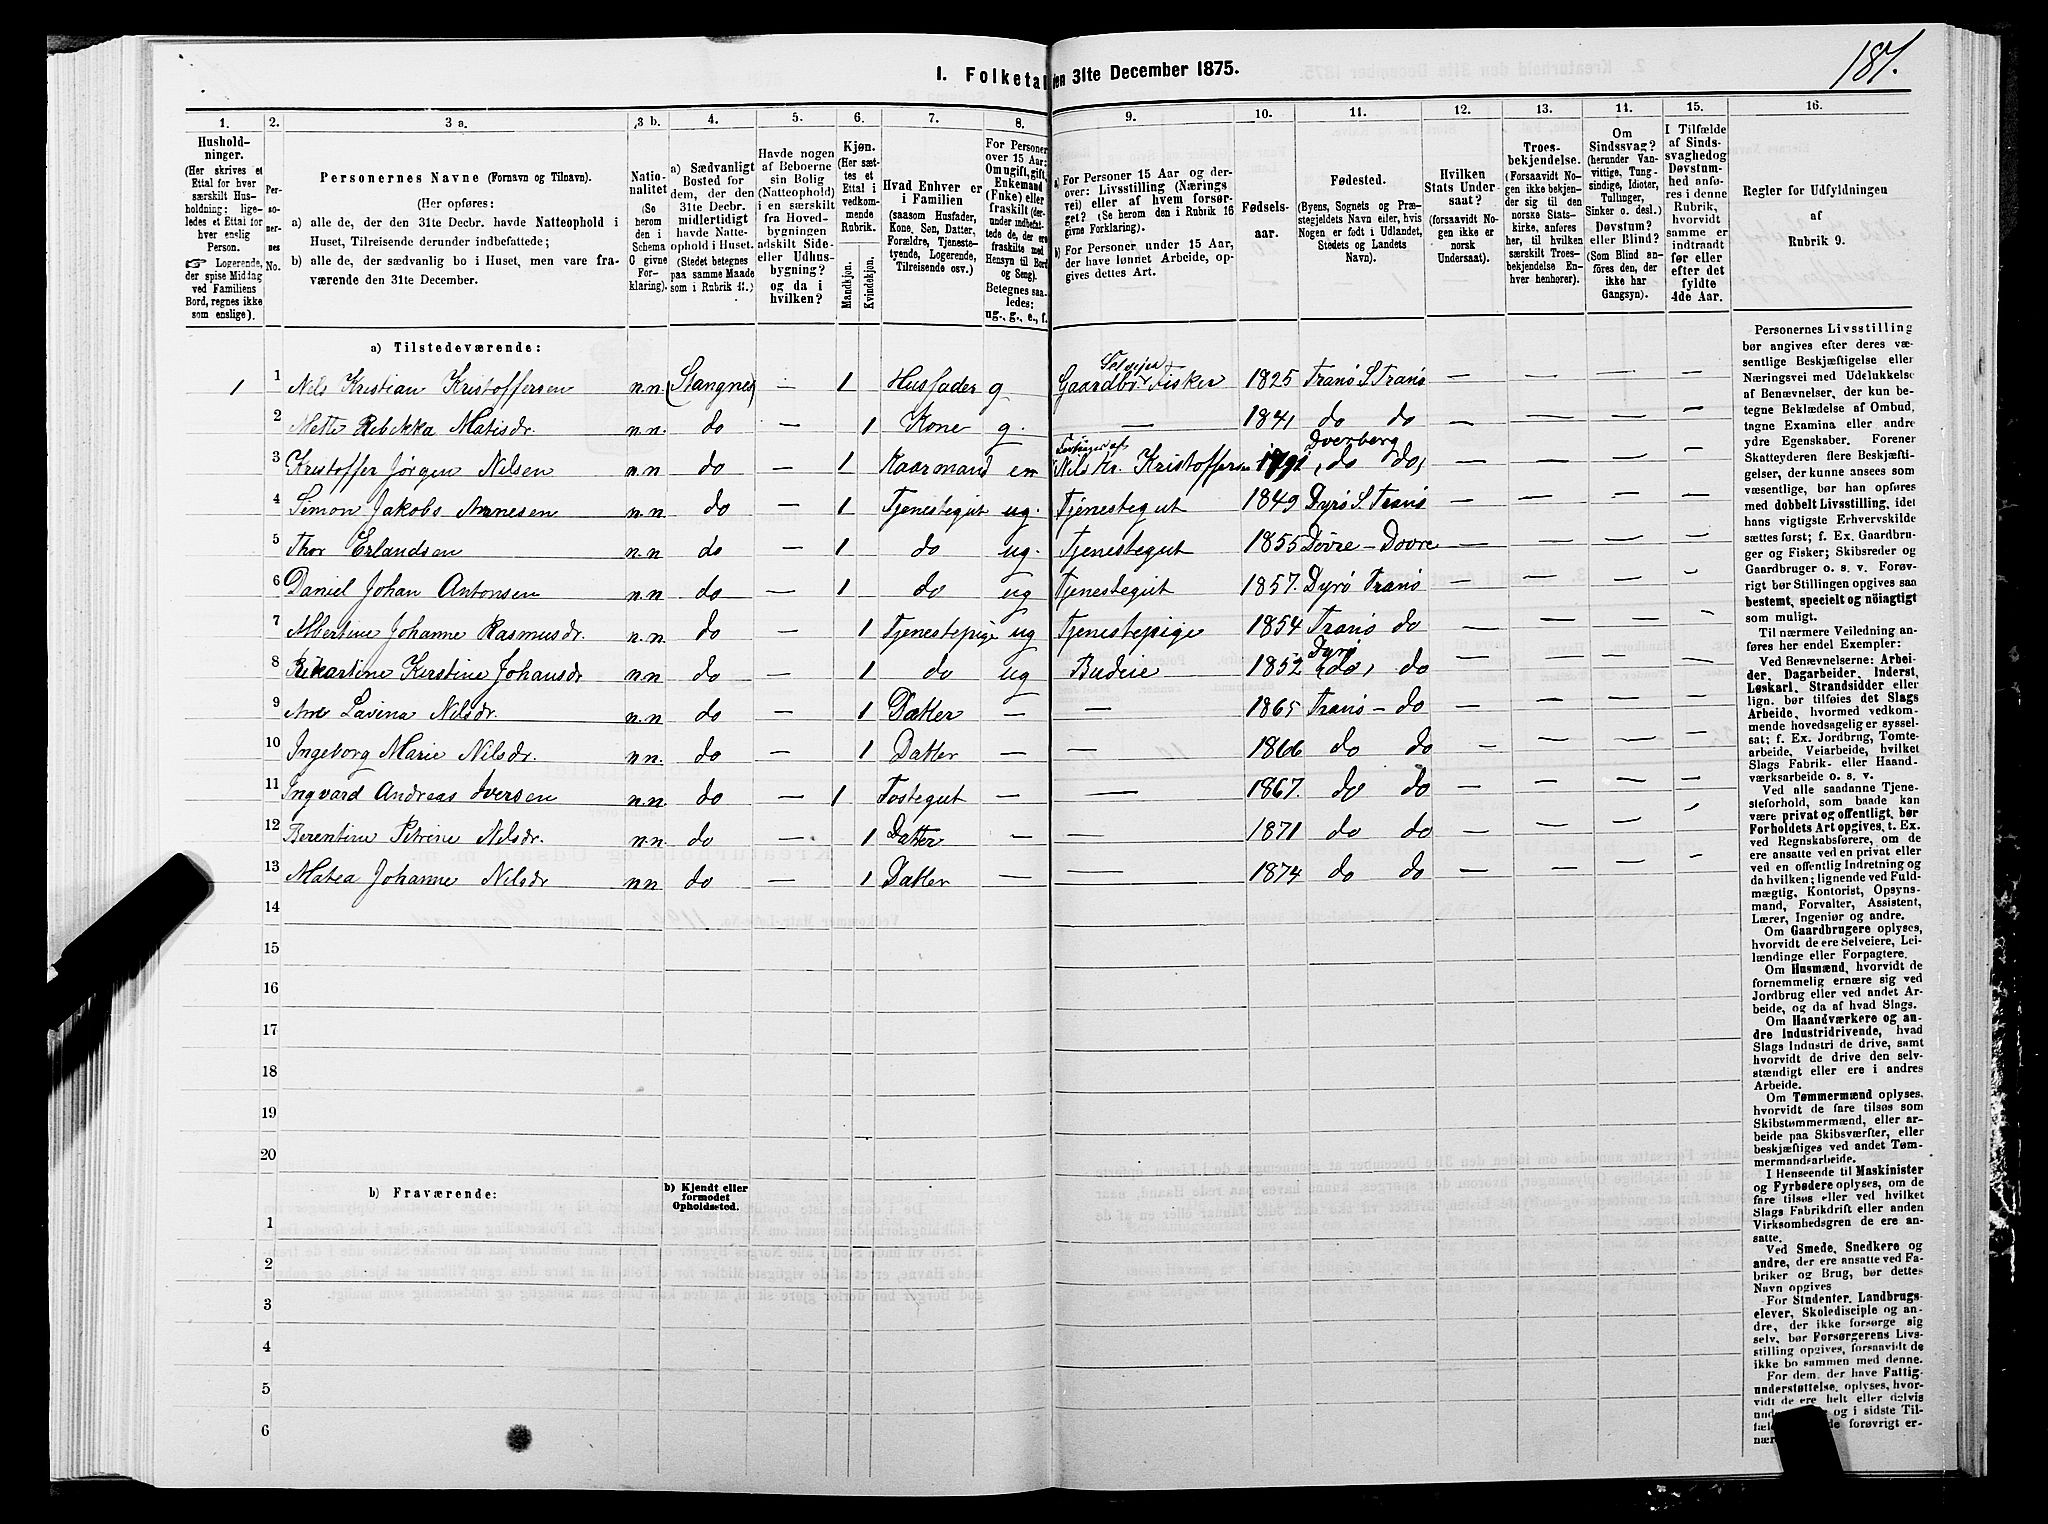 187.
1. Folketal den 31te December 1875.
1. 2. 3 a. 3 b. 4. 5. 6. 7. 8. 9. 10. 11. 12. 13. 14. 15. 16.
Hushold-
ninger.
(Her skrives et
Ettal for hver
særskilt Hus-
holdning; lige-
ledes et Ettal for
hver enslig
Person.
☞ Logerende,
der spise Middag
ved Familiens
Bord, regnes ikke
som enslige).
Per-
so-
ner-
nes
No.
Personernes Navne (Fornavn og Tilnavn).
(Her opføres:
a) alle de, der den 31te Decbr. havde Natteophold i
Huset, Tilreisende derunder indbefattede;
b) alle de, der sædvanlig bo i Huset, men vare fra-
værende den 31te December.
Natio-
nalitet
(Se
herom
den i
Schema
G givne
For-
klaring).
a) Sædvanligt
Bosted for
dem, der den
31te Decbr.
midlertidigt
havde Natte-
ophold i Huset.
(Stedet betegnes
paa samme Maade
som i Rubrik 11.)
Havde nogen
af Beboerne
sin Bolig
(Natteophold)
i en særskilt
fra Hoved-
bygningen
adskilt Side-
eller Udhus-
bygning?
og da i
hvilken?
Kjøn.
(Her sæt-
tes et
Ettal i
vedkom-
mende
Rubrik.
Mandkjøn.
Kvindekjøn.
Hvad Enhver er
i Familien
(saasom Husfader,
Kone, Søn, Datter,
Forældre, Tjeneste-
tyende, Logerende,
Tilreisende osv.)
For Personer
over 15 Aar:
Om ugift, gift,
Enkemand
(Enke) eller
fraskilt (der-
under indbefat-
tede de, der ere
fraskilte med
Hensyn til Bord
og Seng).
Betegnes saa-
ledes:
ug., g., e., f.
a) For Personer 15 Aar og der-
over: Livsstilling (Nærings
vei) eller af hvem forsør-
get? (Se herom den i Rubrik 16
givne Forklaring).
b) For Personer under 15 Aar,
der have lønnet Arbeide, op-
gives dettes Art.
Fødsels-
aar.
Fødested.
(Byens, Sognets og Præ-
stegjeldets Navn eller, hvis
Nogen er født i Udlandet,
Stedets og Landets
Navn).
Hvilken
Stats Under-
saat?
(forsaavidt No-
gen ikke er
norsk
Undersaat).
Troes-
bekjendelse.
(Forsaavidt No-
gen ikke bekjen-
der sig til den
norske Stats-
kirke, anføres
her, til hvilken
særskilt Troes-
bekjendelse En-
hver henhører).
Om
Sindssvag?
(herunder Van-
vittige, Tung-
sindige, Idioter,
Tullinger,
Sinker o. desl.)
Døvstum?
eller Blind?
(Som Blind an-
føres den, der
ikke har
Gangsyn).
I Tilfælde
af Sinds-
svaghed og
Døvstum-
hed anfø-
res i denne
Rubrik,
hvorvidt
samme er
indtraadt
før eller
efter det
fyldte
4de Aar.
Regler for Udfyldningen
af
Rubrik 9.
a) Tilstedeværende:
1 1 Nils Kristian Kristoffersen n.n. (Stangnes) — 1 Husfader g Selveier Gaardbr Fisker 1825 Tranø S. Tranø — — — —
2 Mette Rebekka Matisdr. n.n. do — 1 Kone g. — 1841 do do — — — —
3 Kristoffer Jørgen Nilsen n.n do — 1 Kaarmand em Forsørges af Nils Kr. Kristoffersen Dverberg do do — — — —
4 Simon Jakobs Arnesen n.n do — 1 Tjenestegut ug. Tjenestegut 1849 Dyrø S. Tranø — — — —
5 Thor Erlandsen n.n do — 1 do ug. Tjenestegut 1855 Dovre — Dovre — — — —
6 Daniel Johan Antonsen n.n do — 1 do ug Tjenestegut 1857. Dyrø Tranø — — — —
7 Albertine Johanne Rasmusdr. n.n do — 1 Tjenestepige ug Tjenestepige 1854 Tranø do — — — —
8 Rikartine Kerstine Johansdr n.n do — 1 do ug Budeie 1852 Dyrø (do) do — — — —
9 Ane Lavina Nilsdr. n.n do — 1 Datter — — 1865 Tranø — do — — — —
10 Ingeborg Marie Nilsdr. n.n. do — 1 Datter — — 1866 do do — — — —
11 Ingvard Andreas Iversen n.n. do — 1 Fostegut — — 1867. do do — — — —
12 Berentine Petrine Nilsdr. n.n. do — 1 Datter — — 1871 do do — — — —
13 Matea Johanne Nilsdr n.n do — 1 Datter — — 1874 do do — — — —
14
15
16
17
18
19
20
b) Fraværende:
b) Kjendt eller
formodet
Opholdssted.
1
2
3
4
5
6
Personernes Livsstilling
bør angives efter deres væ-
sentlige Beskjæftigelse eller
Næringsvei med Udelukkelse
af Benævnelser, der kun be-
tegne Beklædelse af Ombud,
tagne Examina eller andre
ydre Egenskaber. Forener
Skatteyderen flere Beskjæfti-
gelser, der kunne ansees som
væsentlige, bør han opføres
med dobbelt Livsstilling, idet
hans vigtigste Erhvervskilde
sættes først; f. Ex. Gaardbru-
ger og Fisker; Skibsreder og
Gaardbruger o. s. v. Forøv-
rigt bør Stillingen opgives saa
bestemt, specielt og nöiagtigt
som muligt.
Til nærmere Veiledning an-
føres her endel Exempler:
Ved Benævnelserne: Arbei-
der, Dagarbeider, Inderst,
Løskarl, Strandsidder eller
lign. bør tilføies det Slags
Arbeide, hvormed vedkom-
mende hovedsagelig er syssel-
sat; f. Ex. Jordbrug, Tomte-
arbeide, Veiarbeide, hvilket
Slags Fabrik- eller Haand-
værksarbeide o. s. v.
Ved alle saadanne Tjene-
steforhold, som baade kan
være privat og offentligt, bør
Forholdets Art opgives, t. Ex.
ved Regnskabsførere, om de
ere ansatte ved en privat eller
ved en offentlig Indretning og
da hvilken; lignende ved Fuld-
mægtig, Kontorist, Opsyns-
mand, Forvalter, Assistent,
Lærer, Ingeniør og andre.
Om Gaardbrugere oplyses,
hvorvidt de ere Selveiere, Lei-
lændinge eller Forpagtere.
Om Husmænd, hvorvidt de
fornemmelig ernære sig ved
Jordbrug eller ved andet Ar-
beide, og da af hvad Slags.
Om Haandværkere og an-
dre Industridrivende, hvad
Slags Industri de drive, samt
hvorvidt de drive den selv-
stændigt eller ere i andres
Arbeide.
Om Tømmermænd oplyses,
hvorvidt de fare tilsøs som
Skibstømmermænd, eller ar-
beide paa Skibsværfter, eller
beskjæftiges ved andet Tøm-
mermandsarbeide.
I Henseende til Maskinister
og Fyrbødere oplyses, om de
fare tilsøs eller ved hvilket
Slags Fabrikdrift eller anden
Virksomhedsgren de ere an-
satte.
Ved Smede, Snedkere og
andre, der ere ansatte ved Fa-
briker og Brug, bør dettes
Navn opgives
For Studenter, Landbrugs-
elever, Skoledisciple og an-
dre, der ikke forsørge sig
selv, bør Forsørgerens Livs-
stilling opgives, forsaavidt de
ikke bo sammen med denne.
For dem, der have Fattig-
understøttelse, oplyses, hvor-
vidt de ere helt eller delvis
og i sidste Til-
forøvrigt er-